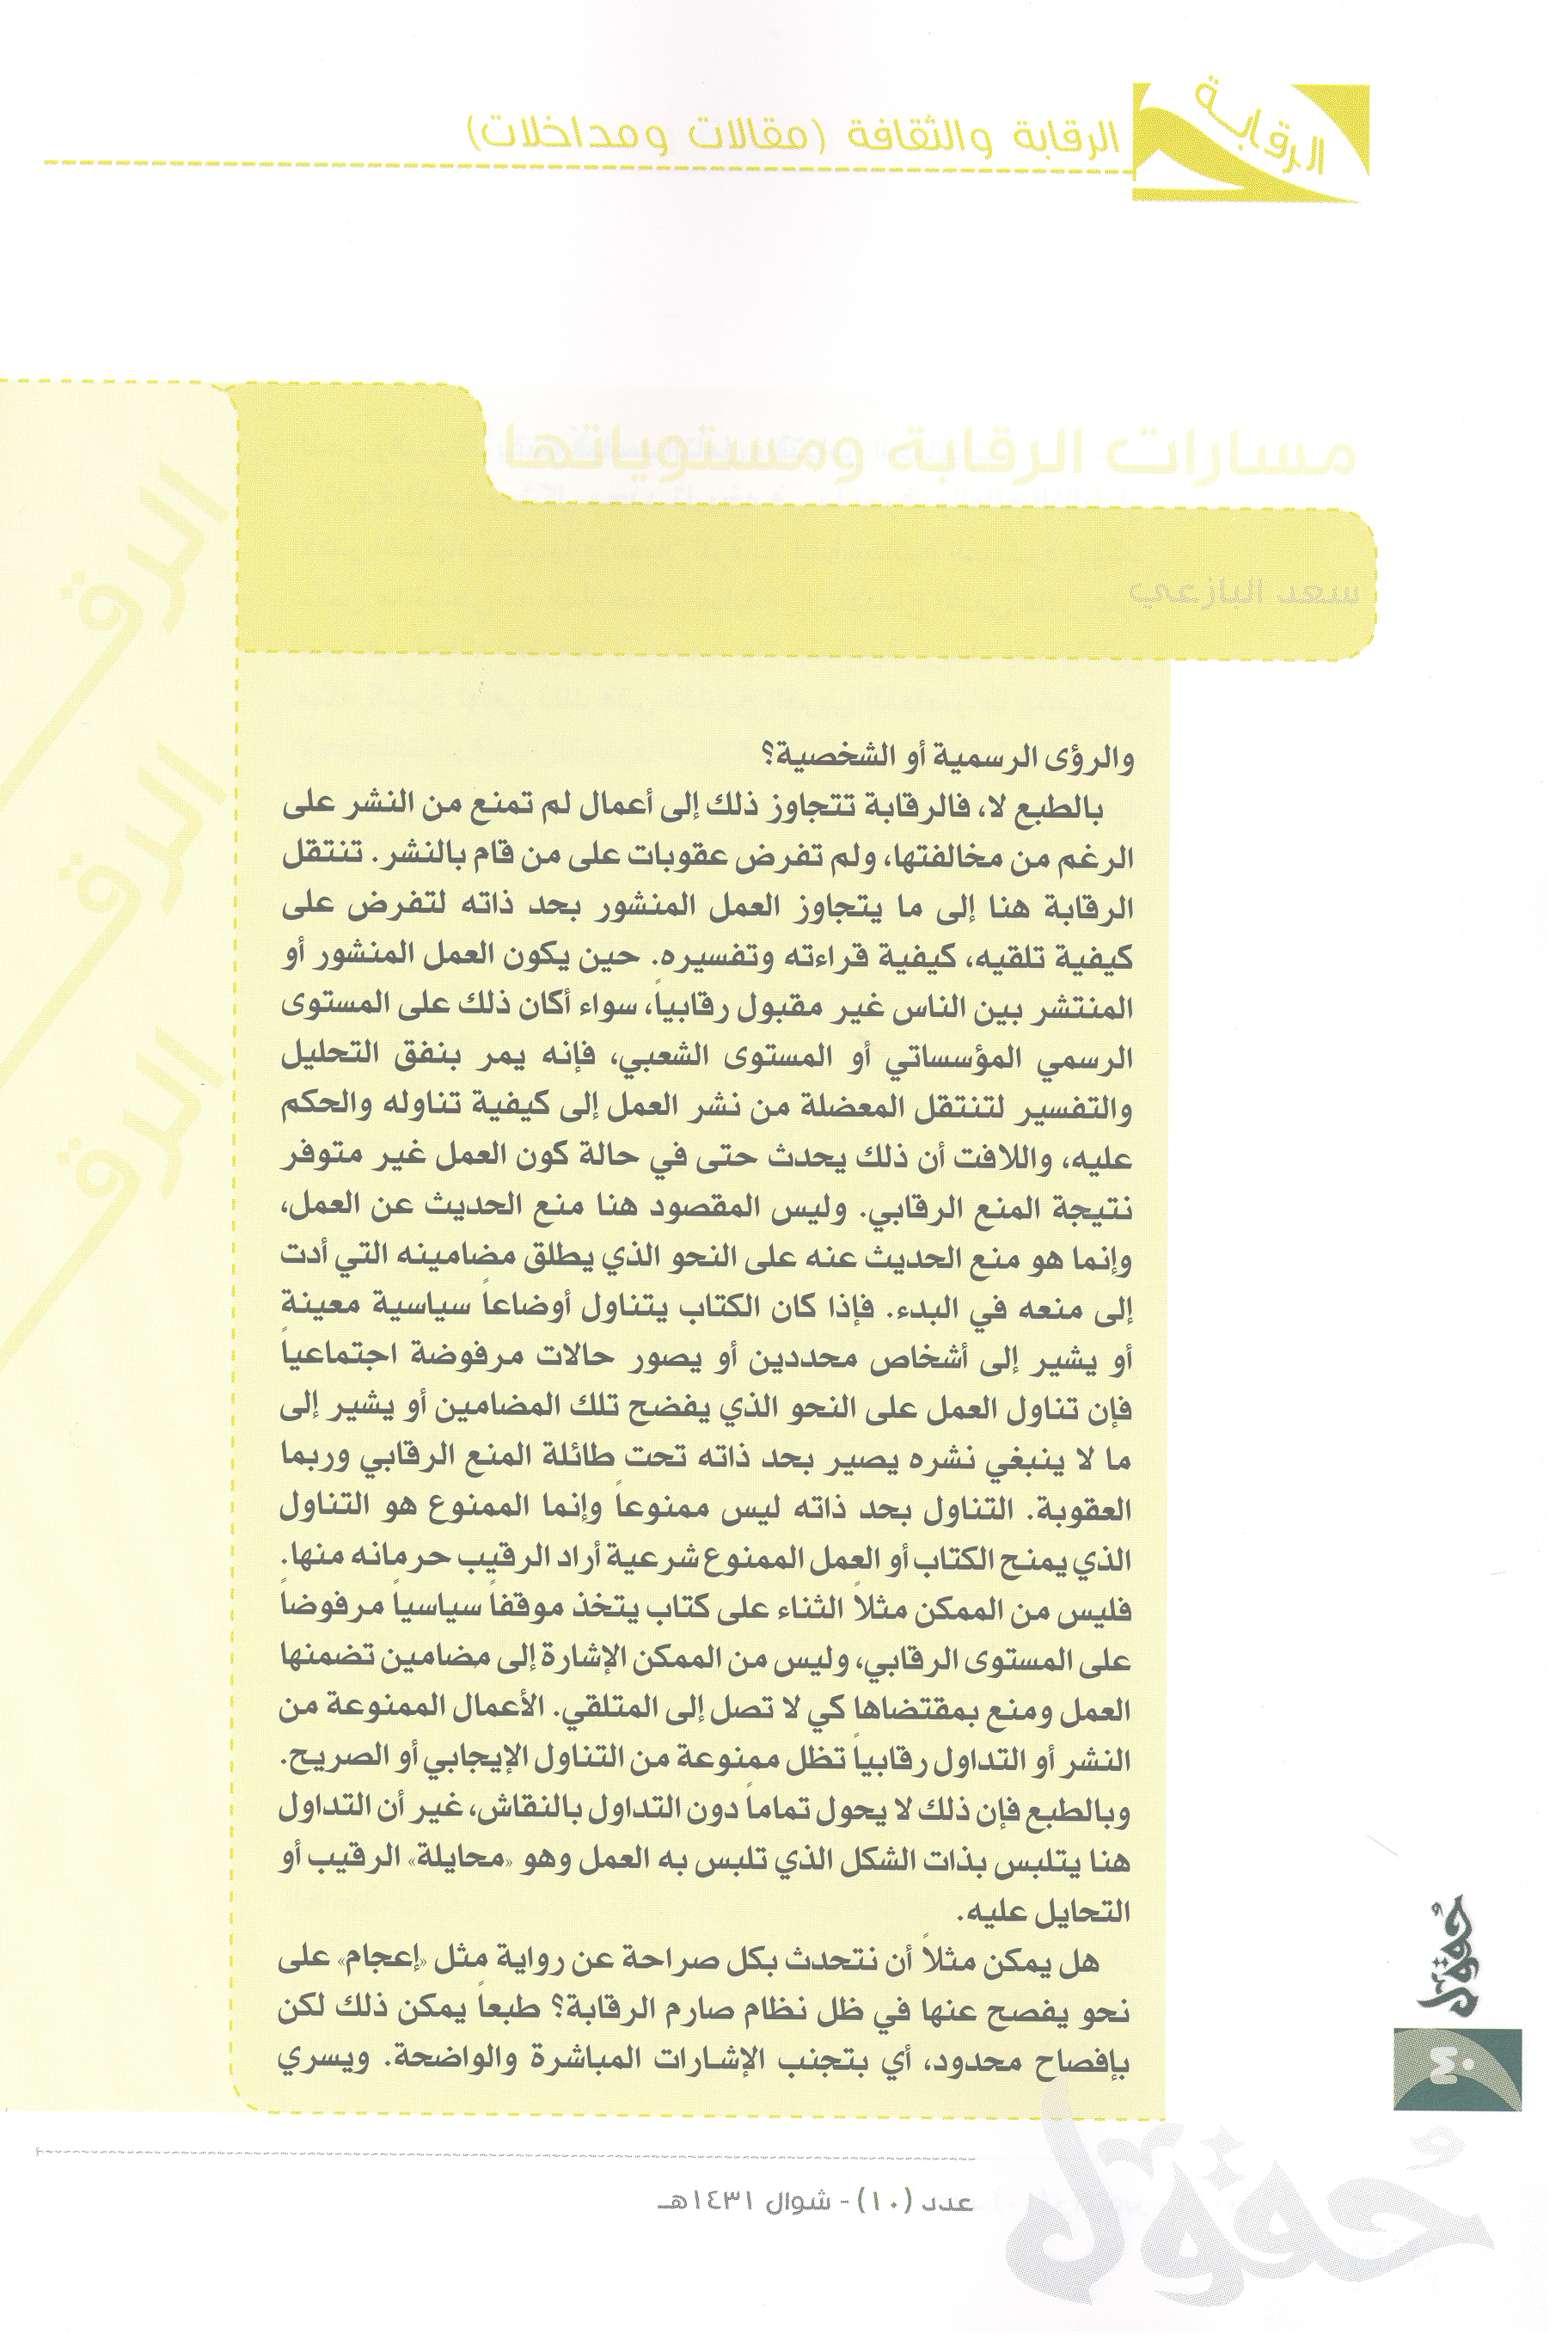 الرقابة
الرقابة والثقافة (مقالات ومداخلات)
مسارات الرقابة ومستوياتها
سعد البازعي
والرؤى الرسمية أو الشخصية؟
بالطبع لا، فالرقابة تتجاوز ذلك إلى أعمال لم تمنع من النشر على
الرغم من مخالفتها، ولم تفرض عقوبات على من قام بالنشر. تنتقل
الرقابة هنا إلى ما يتجاوز العمل المنشور بحد ذاته لتفرض على
كيفية تلقيه، كيفية قراءته وتفسيره. حين يكون العمل المنشور أو
المنتشر بين الناس غير مقبول رقابياً، سواء أكان ذلك على المستوى
الرسمي المؤسساتي أو المستوى الشعبي، فإنه يمر بنفق التحليل
والتفسير لتنتقل المعضلة من نشر العمل إلى كيفية تناوله والحكم
عليه، واللافت أن ذلك يحدث حتى في حالة كون العمل غير متوفر
نتيجة المنع الرقابي. وليس المقصود هنا منع الحديث عن العمل،
وإنما هو منع الحديث عنه على النحو الذي يطلق مضامينه التي أدت
إلى منعه في البدء. فإذا كان الكتاب يتناول أوضاعاً سياسية معينة
أو يشير إلى أشخاص محددين أو يصور حالات مرفوضة اجتماعياً
فإن تناول العمل على النحو الذي يفضح تلك المضامين أو يشير إلى
ما لا ينبغي نشره يصير بحد ذاته تحت طائلة المنع الرقابي وربما
العقوبة. التناول بحد ذاته ليس ممنوعاً وإنما الممنوع هو التناول
الذي يمنح الكتاب أو العمل الممنوع شرعية أراد الرقيب حرمانه منها.
فليس من الممكن مثلاً الثناء على كتاب يتخذ موقفاً سياسياً مرفوضاً
على المستوى الرقابي، وليس من الممكن الإشارة إلى مضامين تضمنها
العمل ومنع بمقتضاها كي لا تصل إلى المتلقي. الأعمال الممنوعة من
النشر أو التداول رقابياً تظل ممنوعة من التناول الإيجابي أو الصريح.
وبالطبع فإن ذلك لا يحول تماماً دون التداول بالنقاش، غير أن التداول
هنا يتلبس بذات الشكل الذي تلبس به العمل وهو «محايلة» الرقيب أو
التحايل عليه.
هل يمكن مثلاً أن نتحدث بكل صراحة عن رواية مثل «إعجام» على
نحو يفصح عنها في ظل نظام صارم الرقابة؟ طبعاً يمكن ذلك لكن
بإفصاح محدود، أي بتجنب الإشارات المباشرة والواضحة. ويسري
الرقـ
الرقـ
الرقـ
حقول
٤٠
عدد (١٠) - شوال ١٤٣١هـ
حقول